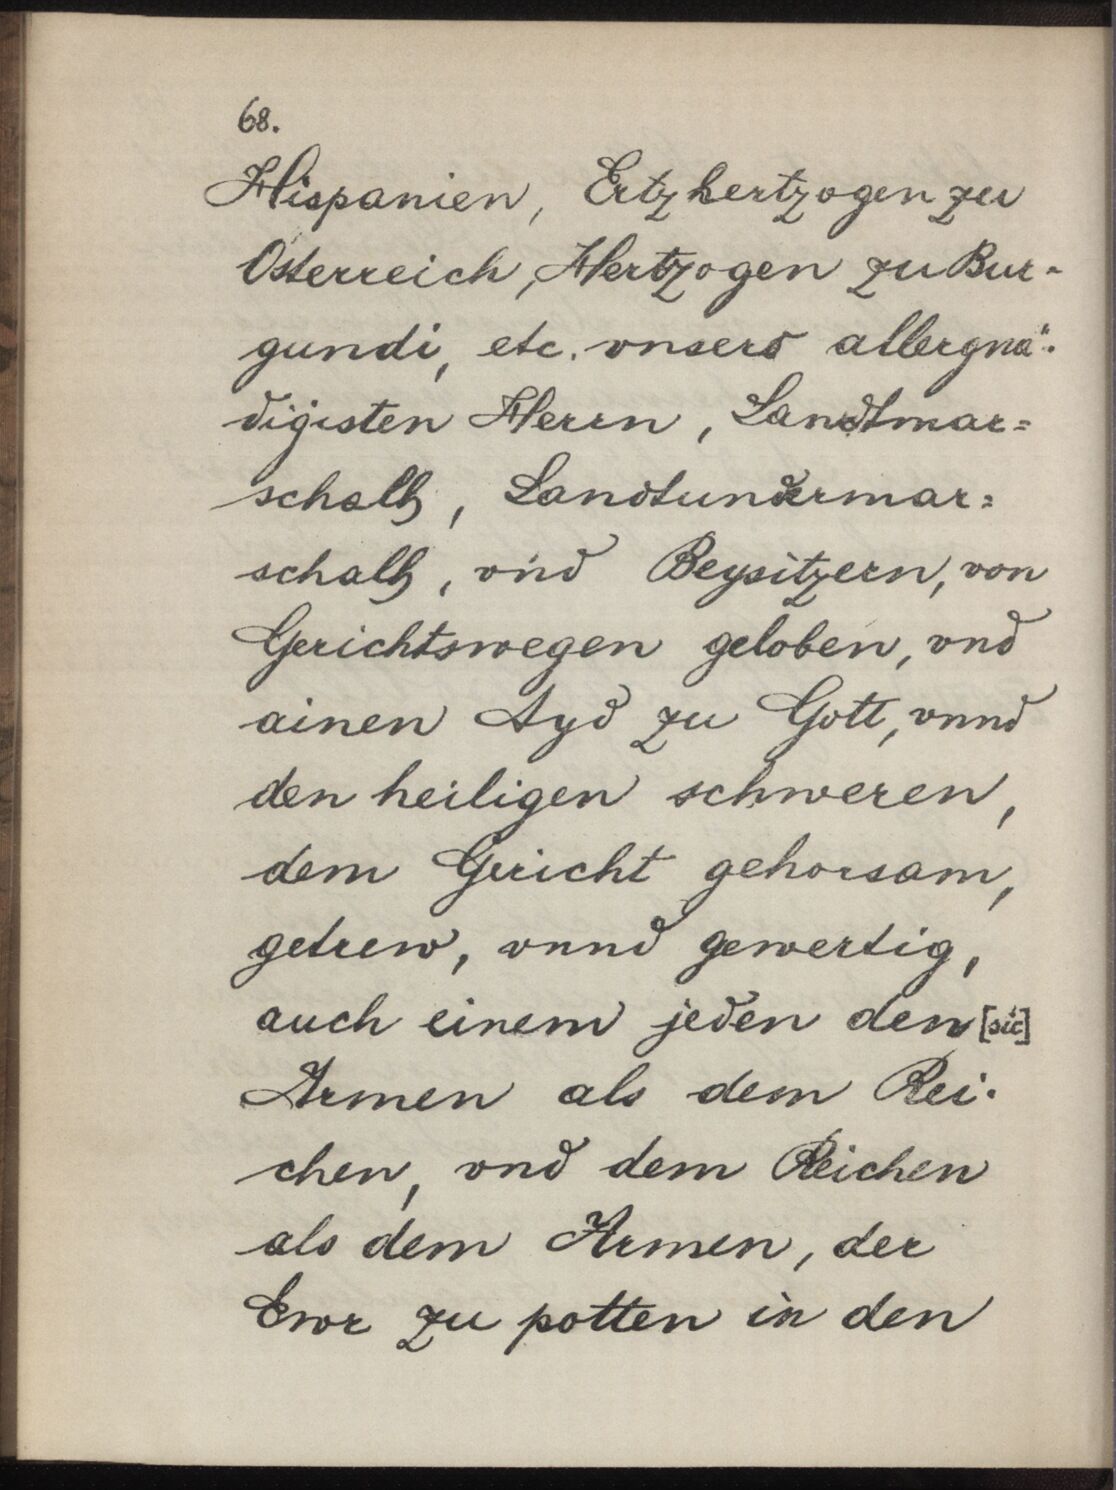 68.
Hispanien, Ertzhertzogen zu
Osterreich, Hertzogen zu Bur-
gundi, etc. vnsers allergnä-
digisten Herrn, Landtmar=
schalh, Landtundermar=
schalh, vnd Beysitzern, von
Gerichtswegen geloben, vnd
ainen Ayd zu Gott, vnnd
den heiligen schweren,
dem Gericht gehorsam,
getrew, vnnd gewertig,
auch einem jeden den [sic]
Armen als dem Rei-
chen, vnd dem Reichen
als dem Armen, der
Ewr zu potten in den